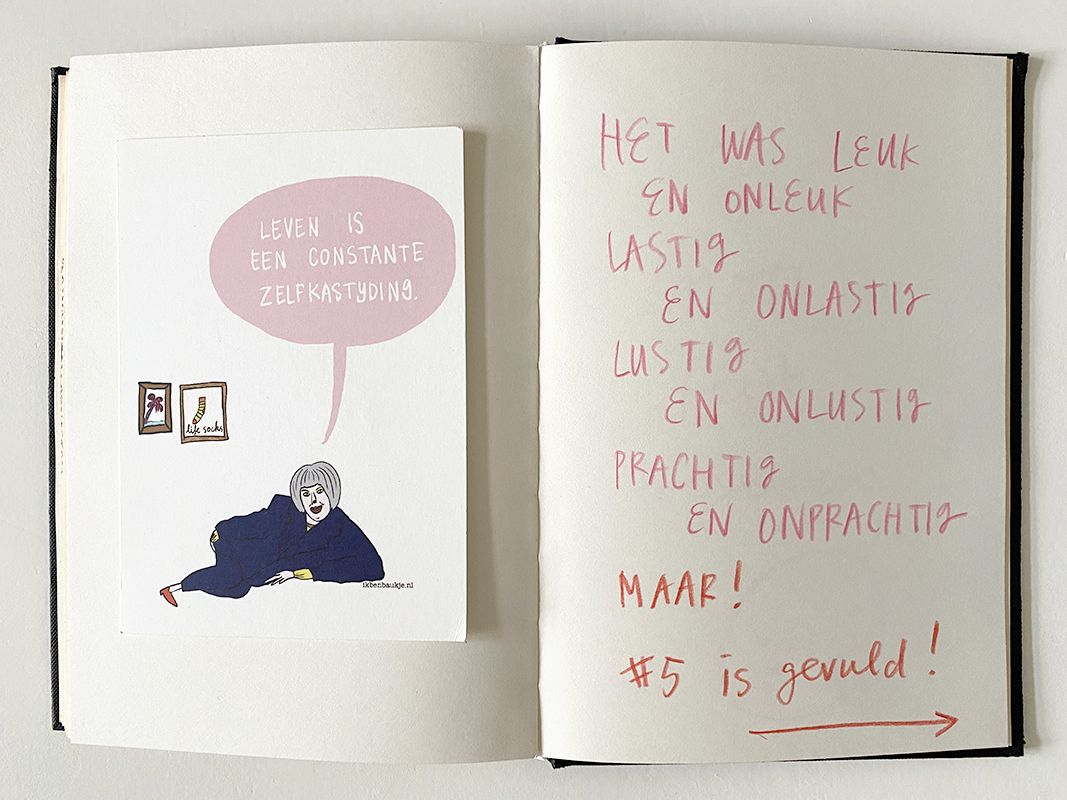 LEVEN IS
EEN CONSTANTE
ZELFKASTYDING.
life socks
ikbenbaukje.nl
HET WAS LEUK
EN ONLEUK
LASTIG
EN ONLASTIG
LUSTIG
EN ONLUSTIG
PRACHTIG
EN ONPRACHTIG
MAAR!
#5 is gevuld!